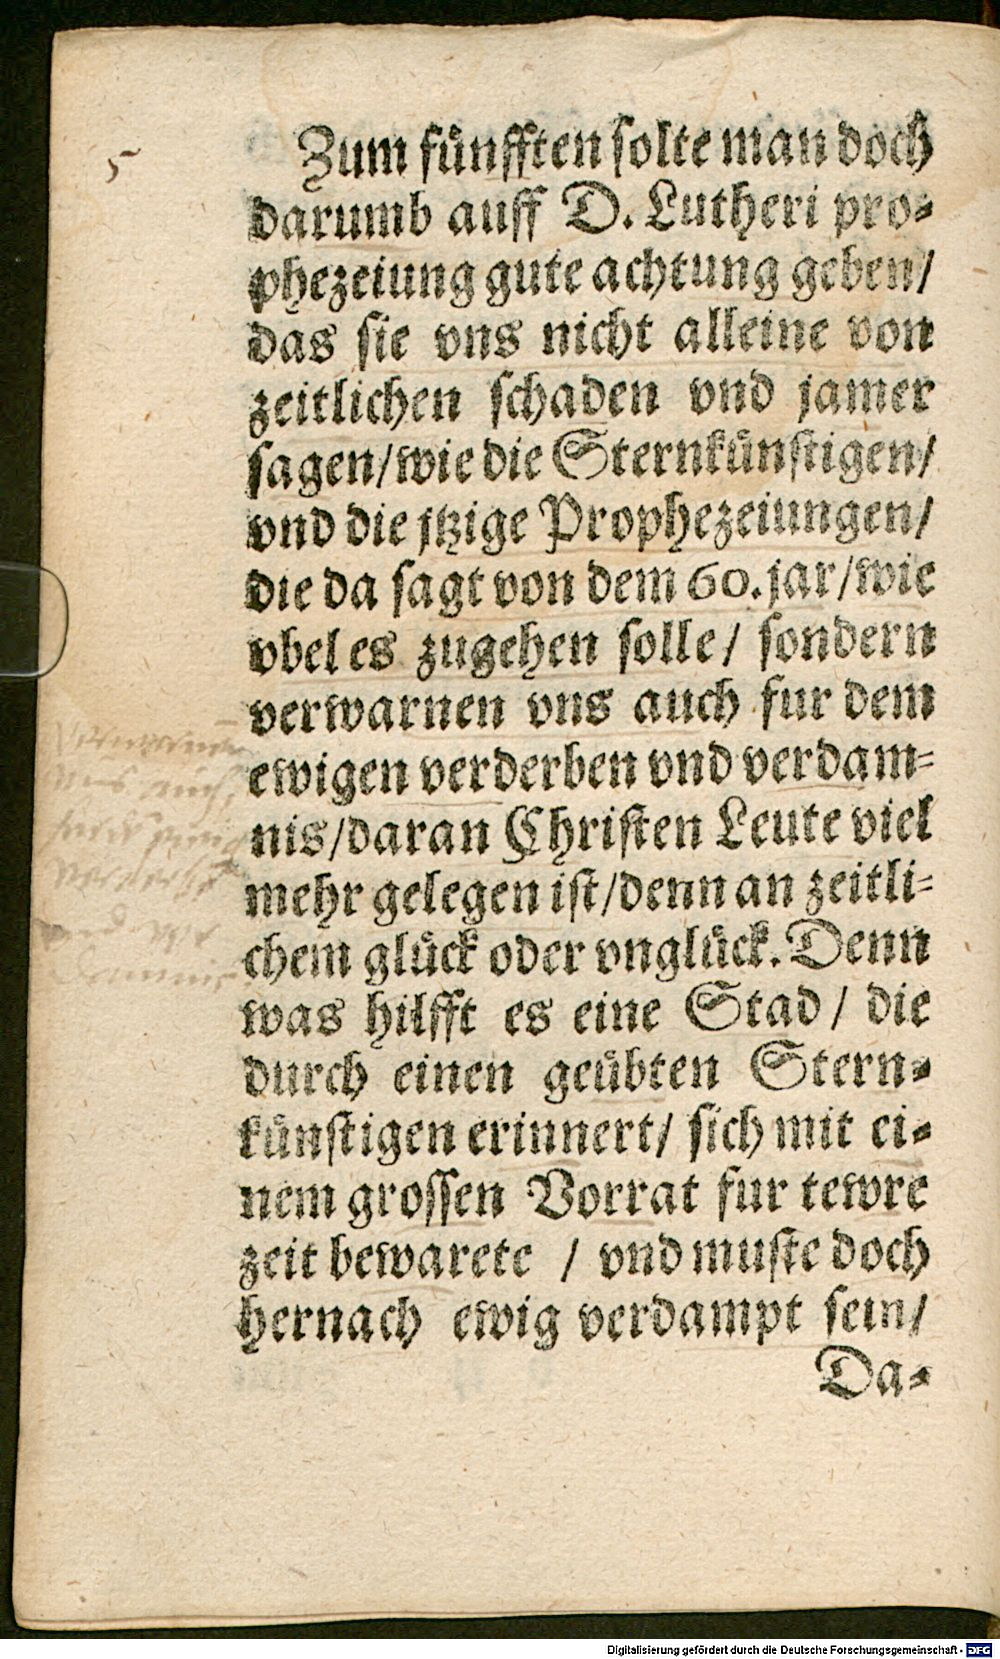 5
Zum fünfften solte man doch
darumb auff D. Lutheri pro-
phezeiung gute achtung geben/
das sie vns nicht alleine von
zeitlichen schaden vnd jamer
sagen/wie die Sternkünstigen/
vnd die jtzige Prophezeiungen/
die da sagt von dem 60. jar/wie
vbel es zugehen solle/ sondern
verwarnen vns auch fur dem
ewigen verderben vnd verdam-
nis/daran Christen Leute viel
mehr gelegen ist/denn an zeitli-
chem glück oder vnglück. Denn
was hilfft es eine Stad/ die
durch einen geübten Stern-
künstigen erinnert/ sich mit ei-
nem grossen Vorrat fur tewre
zeit bewarete / vnd muste doch
hernach ewig verdampt sein/
Da-
Digitalisierung gefördert durch die Deutsche Forschungsgemeinschaft - DFG